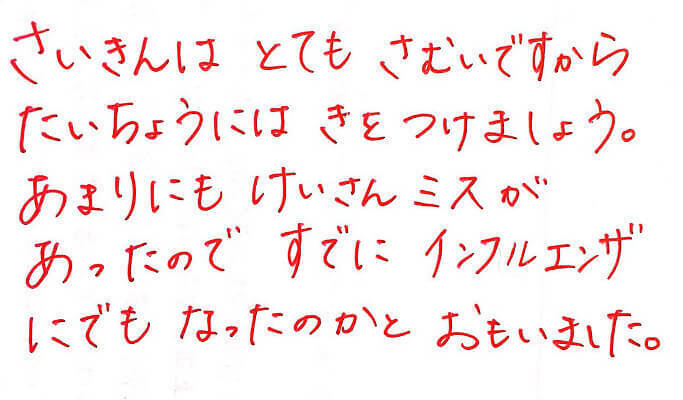 さいきんは とても さむいですから
たいちょうには きを つけましょう。
あまりにも けいさん ミスが
あったので すでに インフルエンザ
にでも なったのかと おもいました。